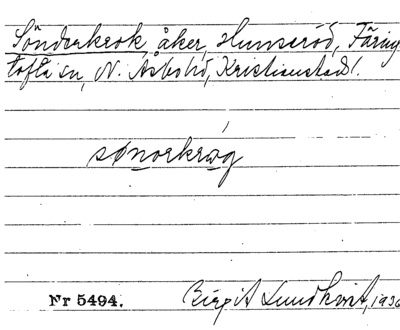 Sönderkrok, åker, Hunseröd, Färing
tofta sn, N. Åsbo hd, Kristianstads l.
sønərkråg
Nr 5494.
Birgit Lundkvist, 1936